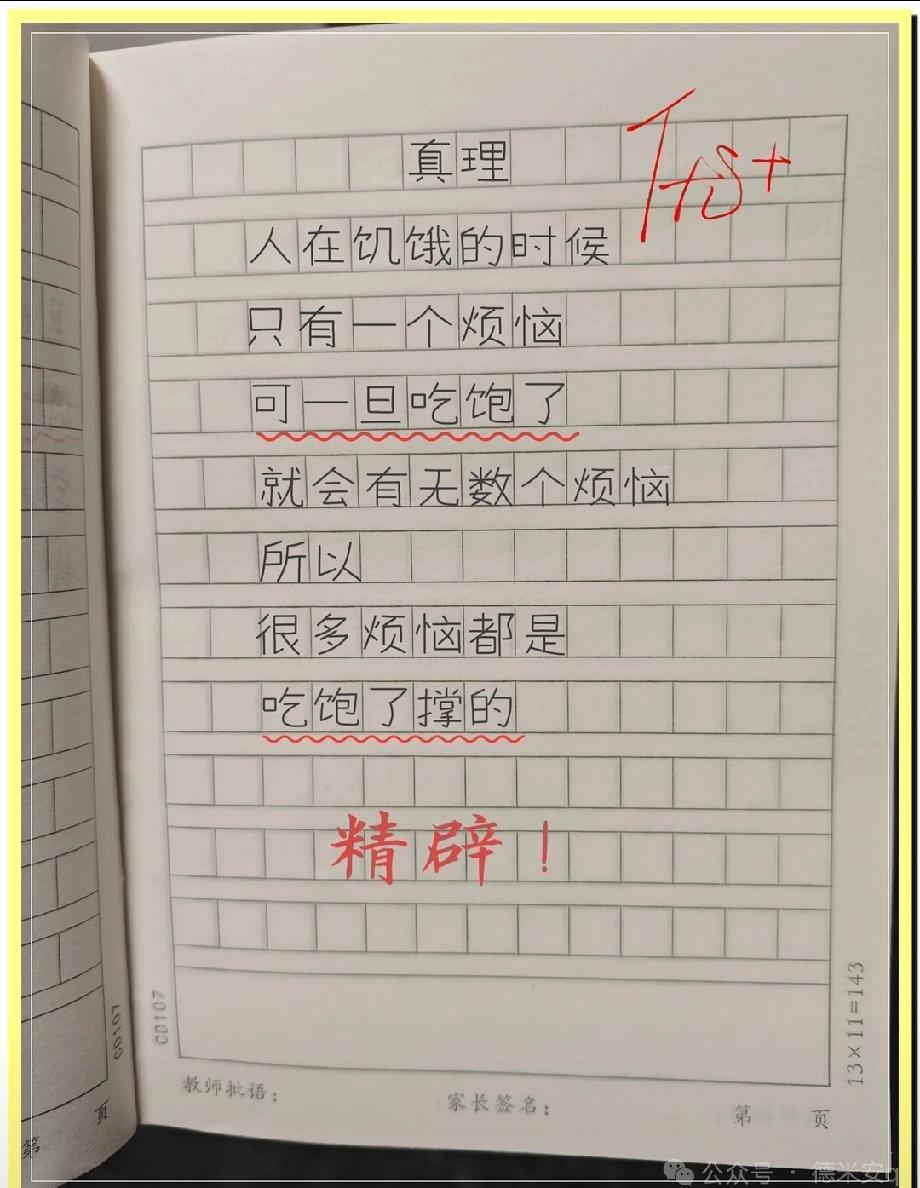 真理
人在饥饿的时候
只有一个烦恼
可一旦吃饱了
就会有无数个烦恼
所以
很多烦恼都是
吃饱了撑的
精辟！
CD107
CD107
13×11=143
教师批语：
家长签名：
第 页
第 页
公众号 · 德米安q